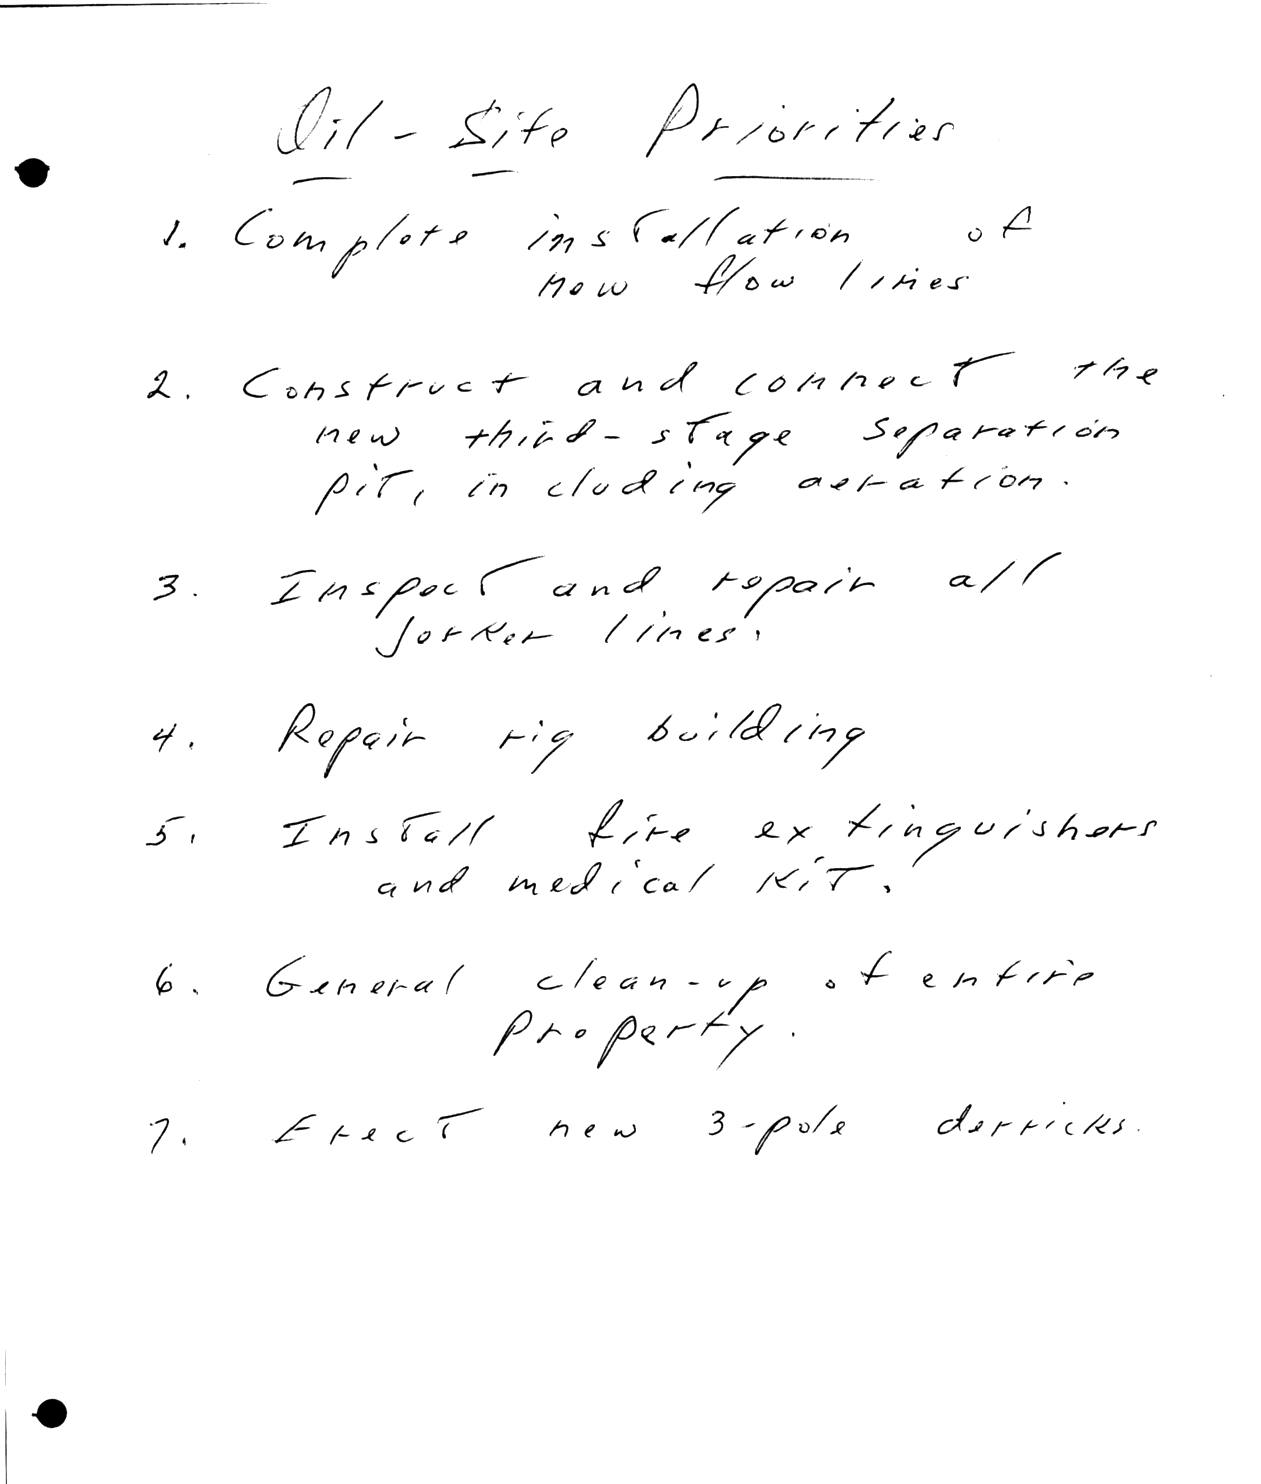 Oil-Site Priorities
1. Complete installation of
new flow lines
2. Construct and connect the
new third-stage separation
pit, including aeration.
3. Inspect and repair all
jerker lines.
4. Repair rig building
5. Install fire extinguishers
and medical kit.
6. General clean-up of entire
property.
7. Erect new 3-pole derricks.